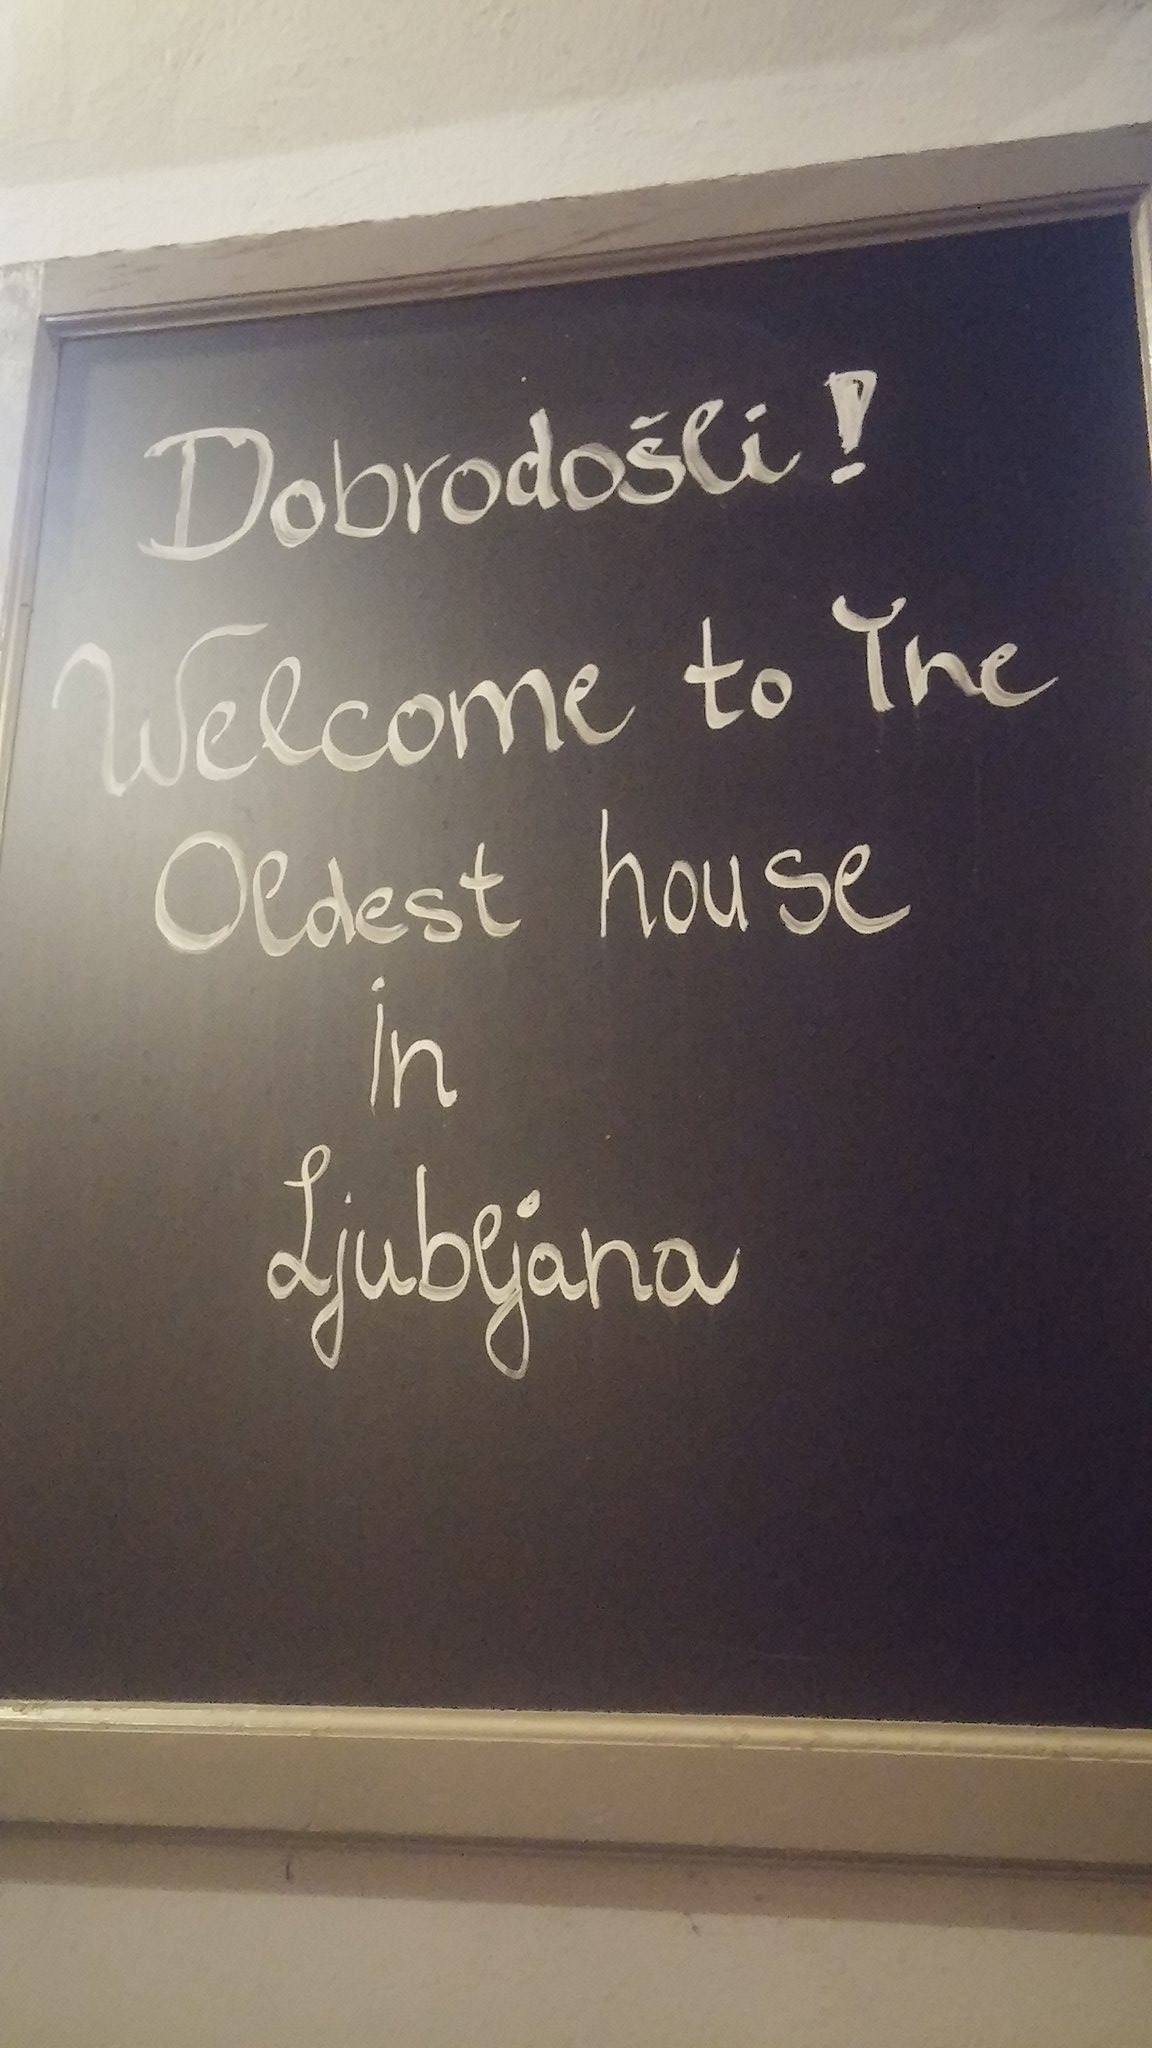 Dobrodošli!
Welcome to The
Oldest house
in
Ljubljana